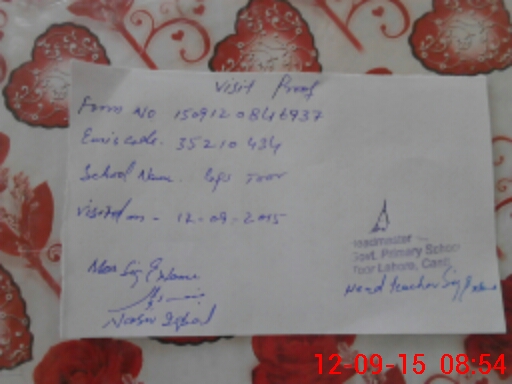 Visit Proof
Form No 1509120846937
Emis code. 35210434
School Name. Gps Toor
Visited on - 12-09-2015
Mon Sig & Name
Nasir Iqbal
Headmaster
Govt. Primary School
Toor Lahore, Cantt
Head teacher Sig & Name
12-09-15 08:54